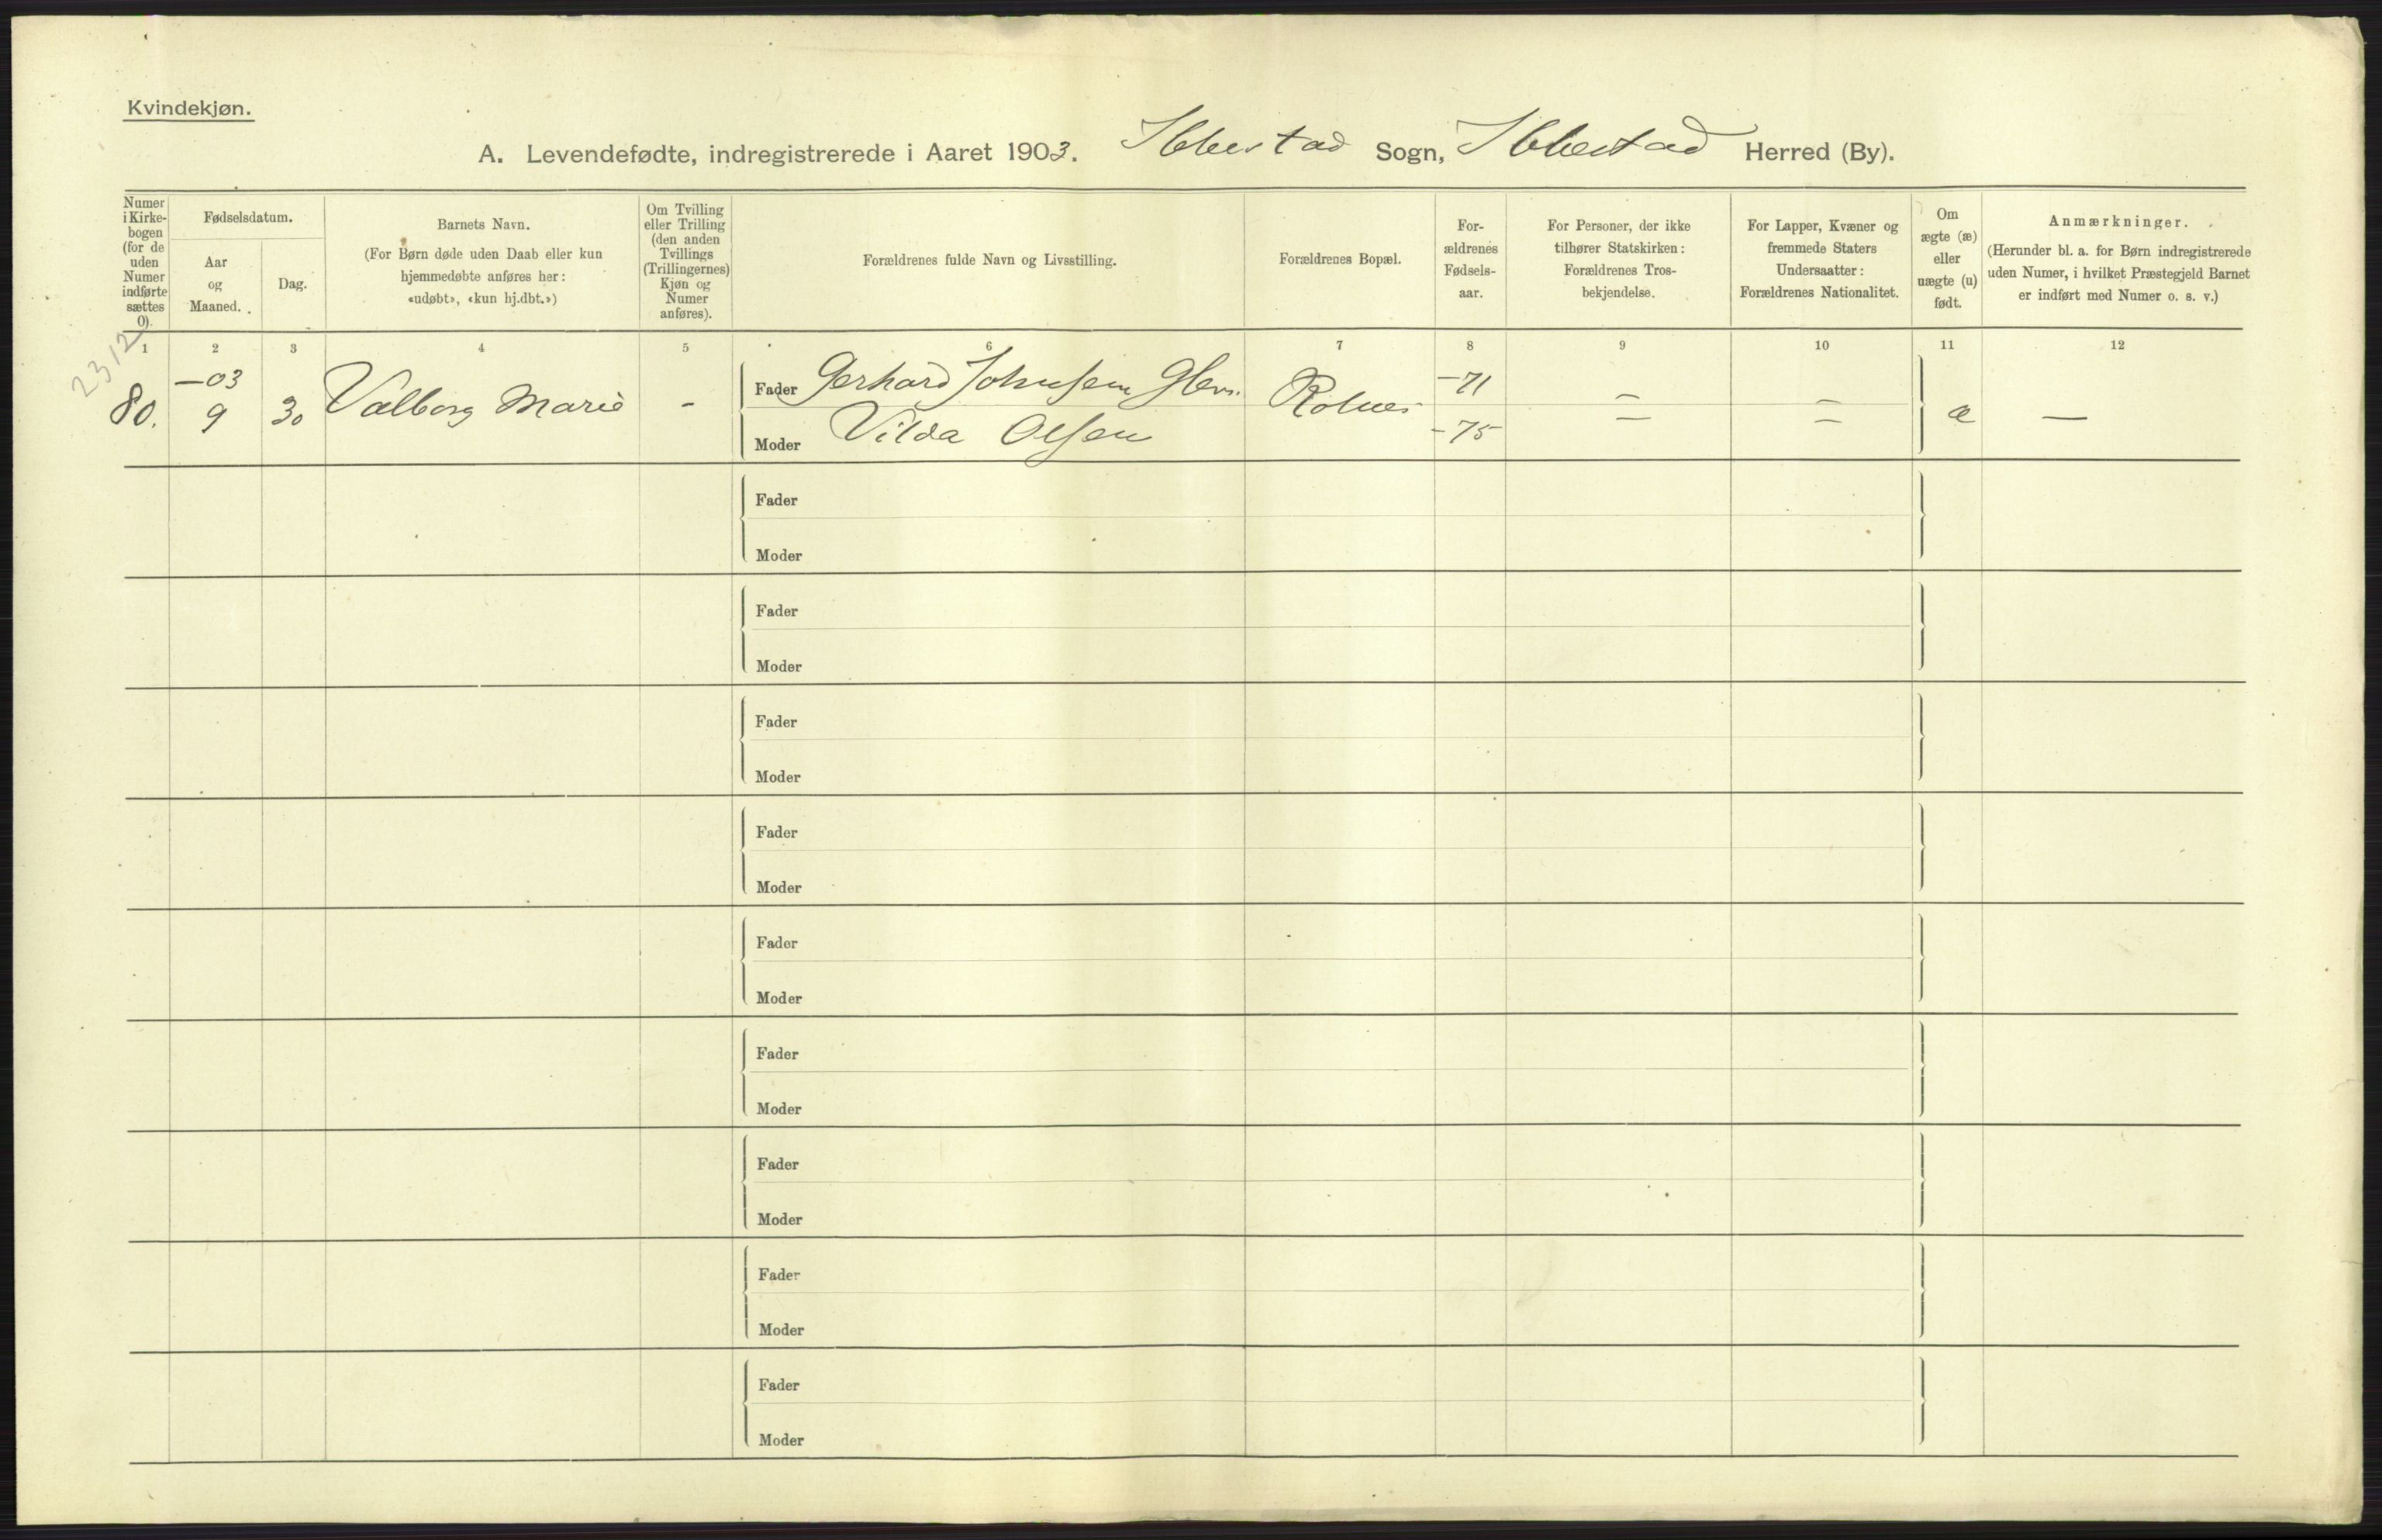 Kvindekjøn.
A. Levendefødte, indregistrerede i Aaret 1903. Ibbestad Sogn, Ibbestad Herred (By).
Numer
i Kirke-
bogen
(for de
uden
Numer
indførte
sættes
0).
Fødselsdatum.
Aar
og
Maaned.
Dag.
Barnets Navn.
(For Børn døde uden Daab eller kun
hjemmedøbte anføres her:
«udøbt», «kun hj.dbt.»)
Om Tvilling
eller Trilling
(den anden
Tvillings
(Trillingernes)
Kjøn og
Numer
anføres).
Forældrenes fulde Navn og Livsstilling.
Forældrenes Bopæl.
For-
ældrenes
Fødsels-
aar.
For Personer, der ikke
tilhører Statskirken:
Forældrenes Tros-
bekjendelse.
For Lapper, Kvæner og
fremmede Staters
Undersaatter:
Forældrenes Nationalitet.
Om
ægte (æ)
eller
uægte (u)
født.
Anmærkninger.
(Herunder bl. a. for Børn indregistrerede
uden Numer, i hvilket Præstegjeld Barnet
er indført med Numer o. s. v.)
1 2 3 4 5 6 7 8 9 10 11 12
2312
80. —03 9 30 Valborg Marie -
Fader Gerhard Johnsen -71
Rolnes = = æ —
Moder Vilda Olsen -75
Fader
Moder
Fader
Moder
Fader
Moder
Fader
Moder
Fader
Moder
Fader
Moder
Fader
Moder
Fader
Moder
Fader
Moder